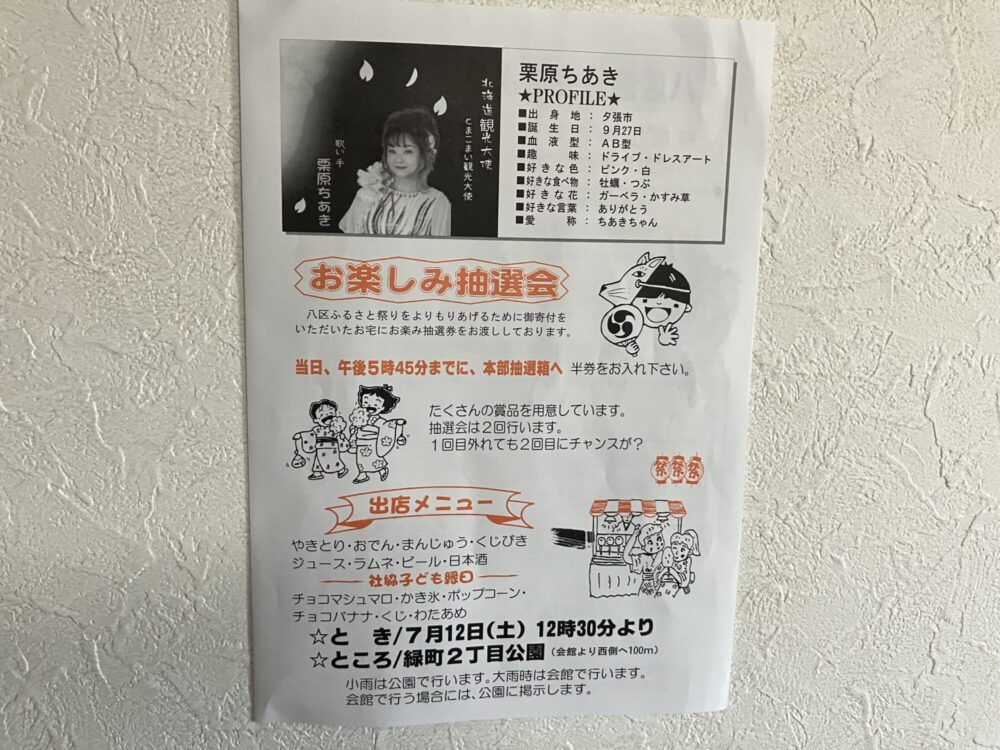 北海道観光大使
とまこまい観光大使
歌い手
栗原ちあき
栗原ちあき
★PROFILE★
■出身地：夕張市
■誕生日：9月27日
■血液型：AB型
■趣味：ドライブ・ドレスアート
■好きな色：ピンク・白
■好きな食べ物：牡蠣・つぶ
■好きな花：ガーベラ・かすみ草
■好きな言葉：ありがとう
■愛称：ちあきちゃん
お楽しみ抽選会
八区ふるさと祭りをよりもりあげるために御寄付を
いただいたお宅にお楽み抽選券をお渡ししております。
当日、午後5時45分までに、本部抽選箱へ 半券をお入れ下さい。
たくさんの賞品を用意しています。
抽選会は2回行います。
1回目外れても2回目にチャンスが？
祭祭祭
出店メニュー
やきとり・おでん・まんじゅう・くじびき
ジュース・ラムネ・ビール・日本酒
社協子ども縁日
チョコマシュマロ・かき氷・ポップコーン・
チョコバナナ・くじ・わたあめ
☆と き/7月12日(土) 12時30分より
☆ところ/緑町2丁目公園（会館より西側へ100m）
小雨は公園で行います。大雨時は会館で行います。
会館で行う場合には、公園に掲示します。